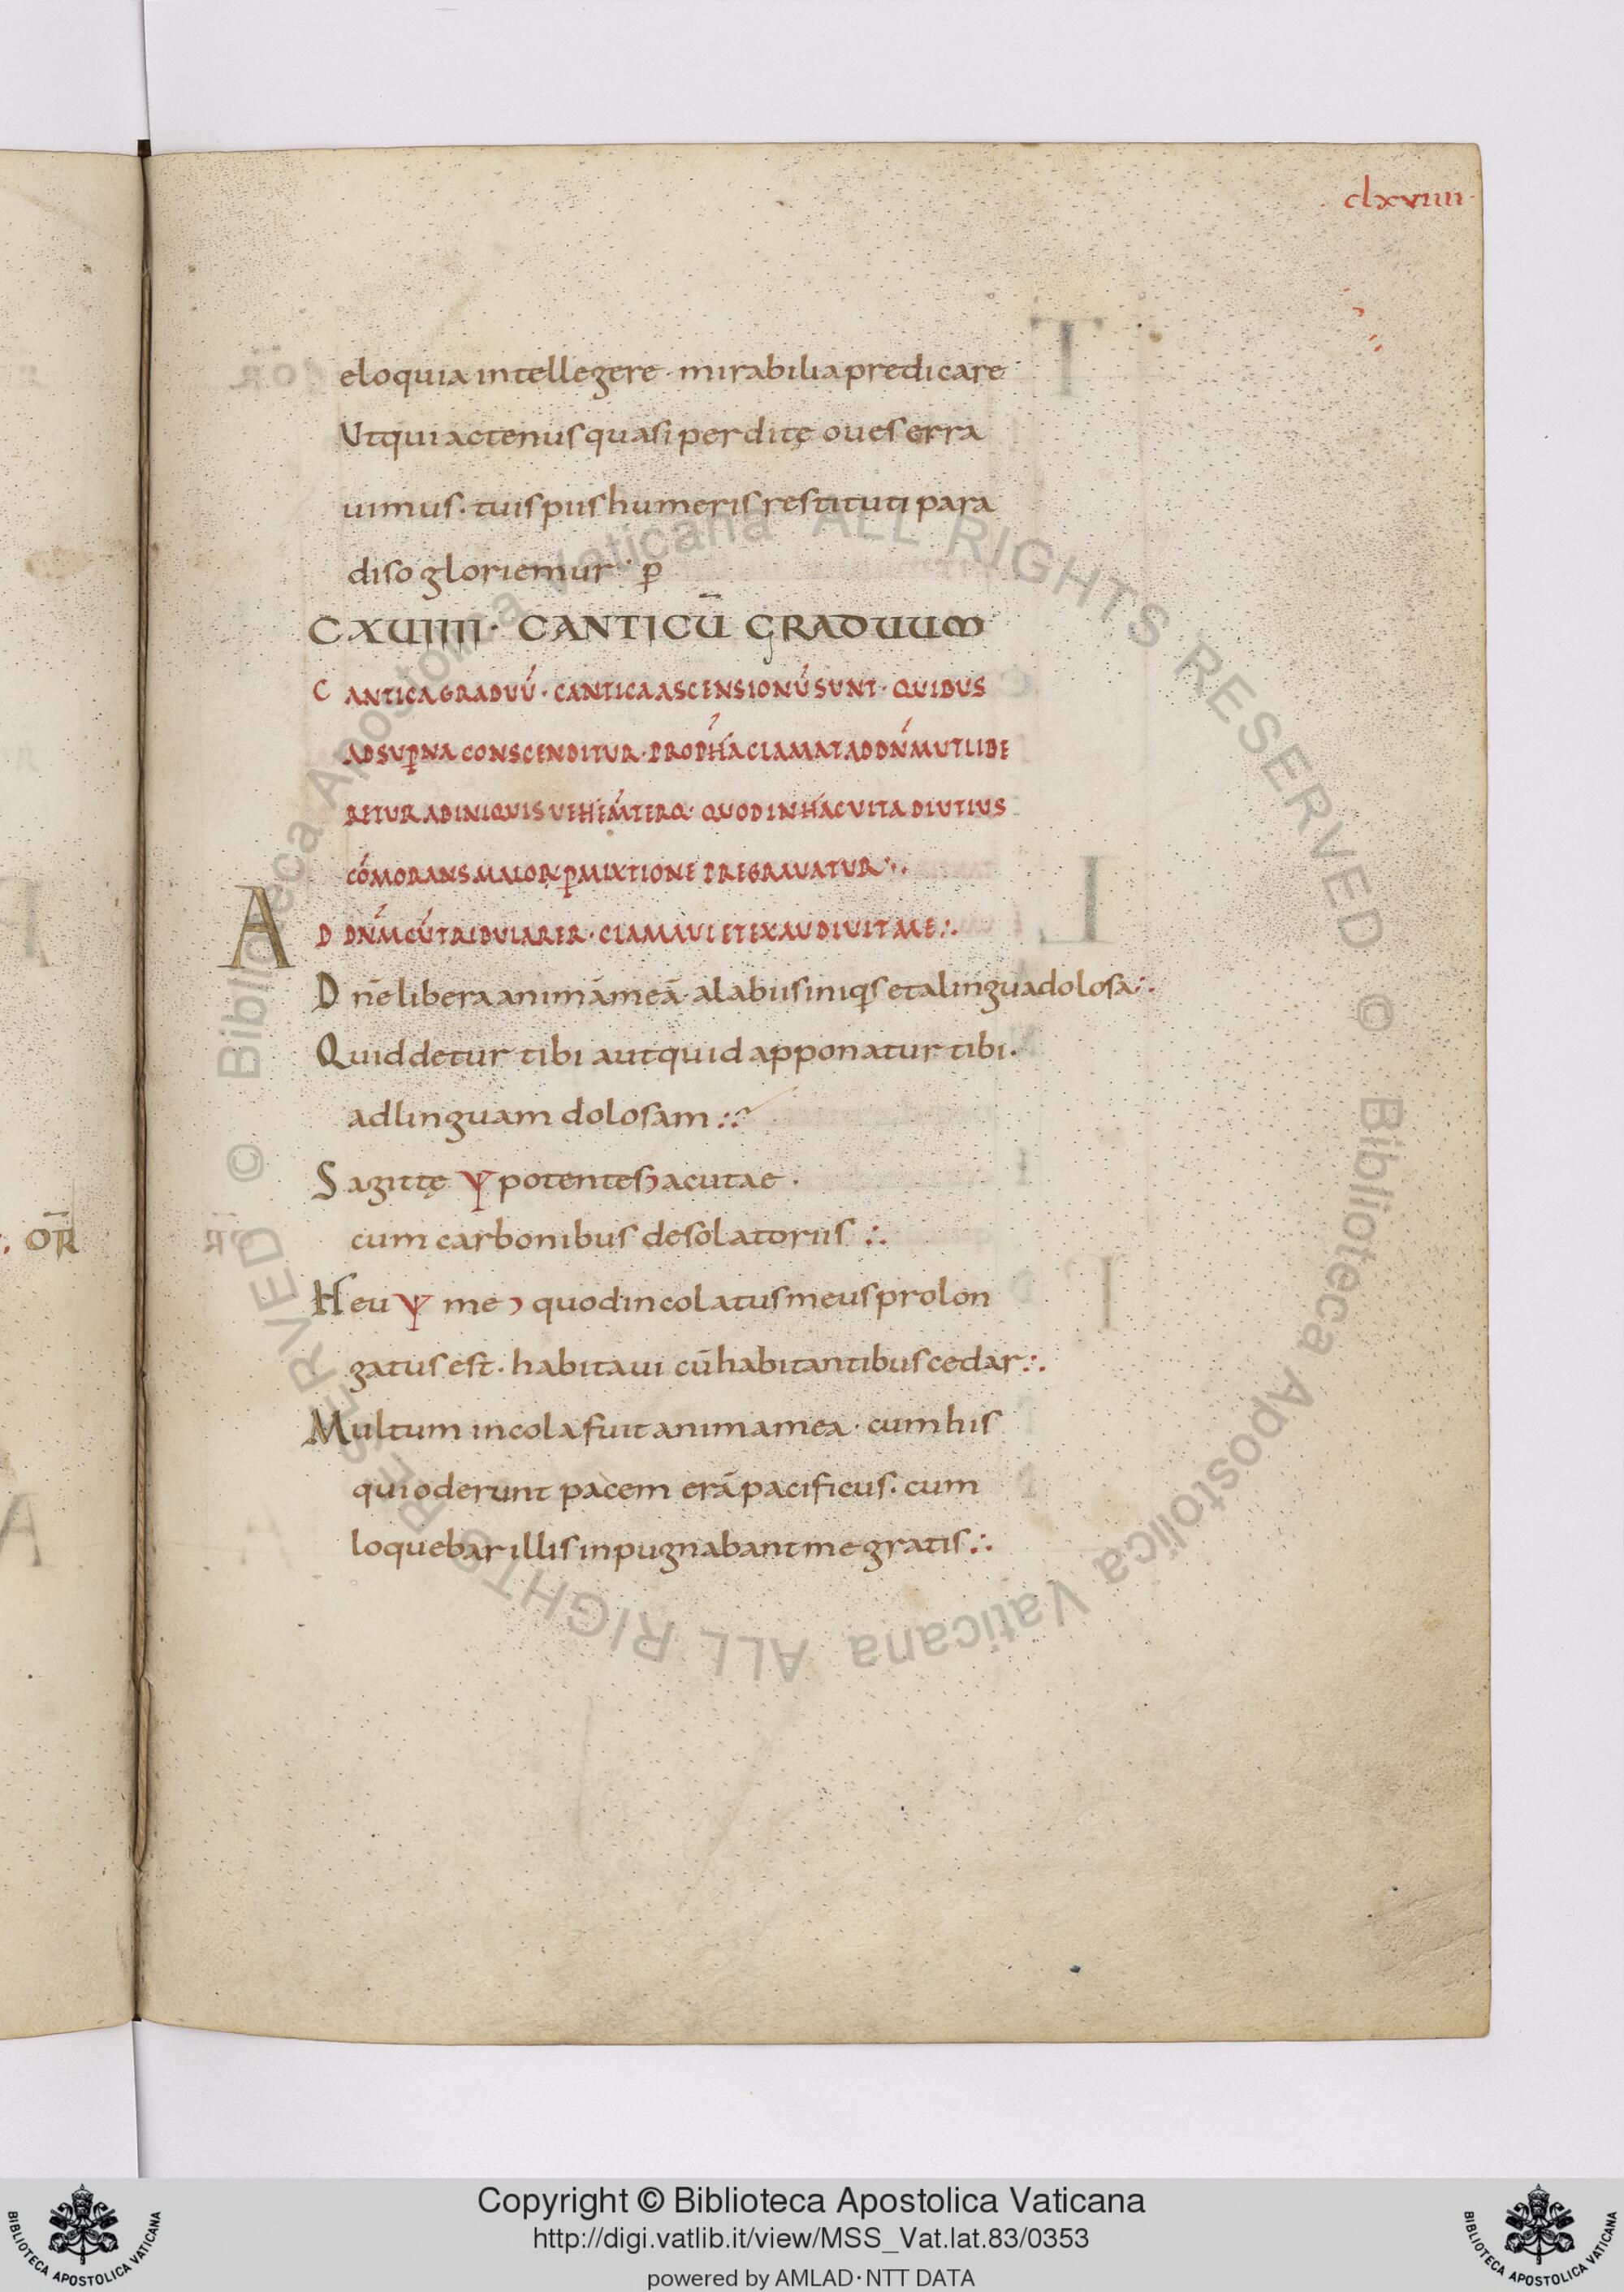 clxviiii
eloquia intellegere · mirabilia predicare
Ut qui actenus quasi perditę oves erra
uimus · tuis piis humeris restituti para
diso gloriemur · ꝑ
CXVIIII · CANTICŪ GRADUUM
CANTICA GRADUŪ · CANTICA ASCENSIONŪ SUNT · QUIBUS
AD SUꝐNA CONSCENDITUR · PROPH̄A CLAMAT AD DN̄M UT LIBE
RETUR AB INIQUIS UEHEM̄TERQ· QUOD IN HAC VITA DIUTIUS
CŌMORANS MALOꝜ ꝐMIXTIONE PREGRAVATUR ∴
AD DN̄M CŪ TRIBULARER · CLAMAVI ET EXAUDIVIT ME ∴
Dn̄e libera animā meā · a labiis iniqis et a lingua dolosa ∴
Quid detur tibi aut quid apponatur tibi ·
ad linguam dolosam ∴
Sagittę potentes acutae ·
cum carbonibus desolatoriis ∴
Heu me quod incolatus meus prolon
gatus est · habitavi cū habitantibus cedar ∴
Multum incola fuit anima mea · cum his
qui oderunt pacem erā pacificus · cum
loquebar illis inpugnabant me gratis ∴
OR̄
© Biblioteca Apostolica Vaticana ALL RIGHTS RESERVED © Biblioteca Apostolica Vaticana ALL RIGHTS RESERVED
Copyright © Biblioteca Apostolica Vaticana
http://digi.vatlib.it/view/MSS_Vat.lat.83/0353
powered by AMLAD·NTT DATA
BIBLIOTECA APOSTOLICA VATICANA
BIBLIOTECA APOSTOLICA VATICANA